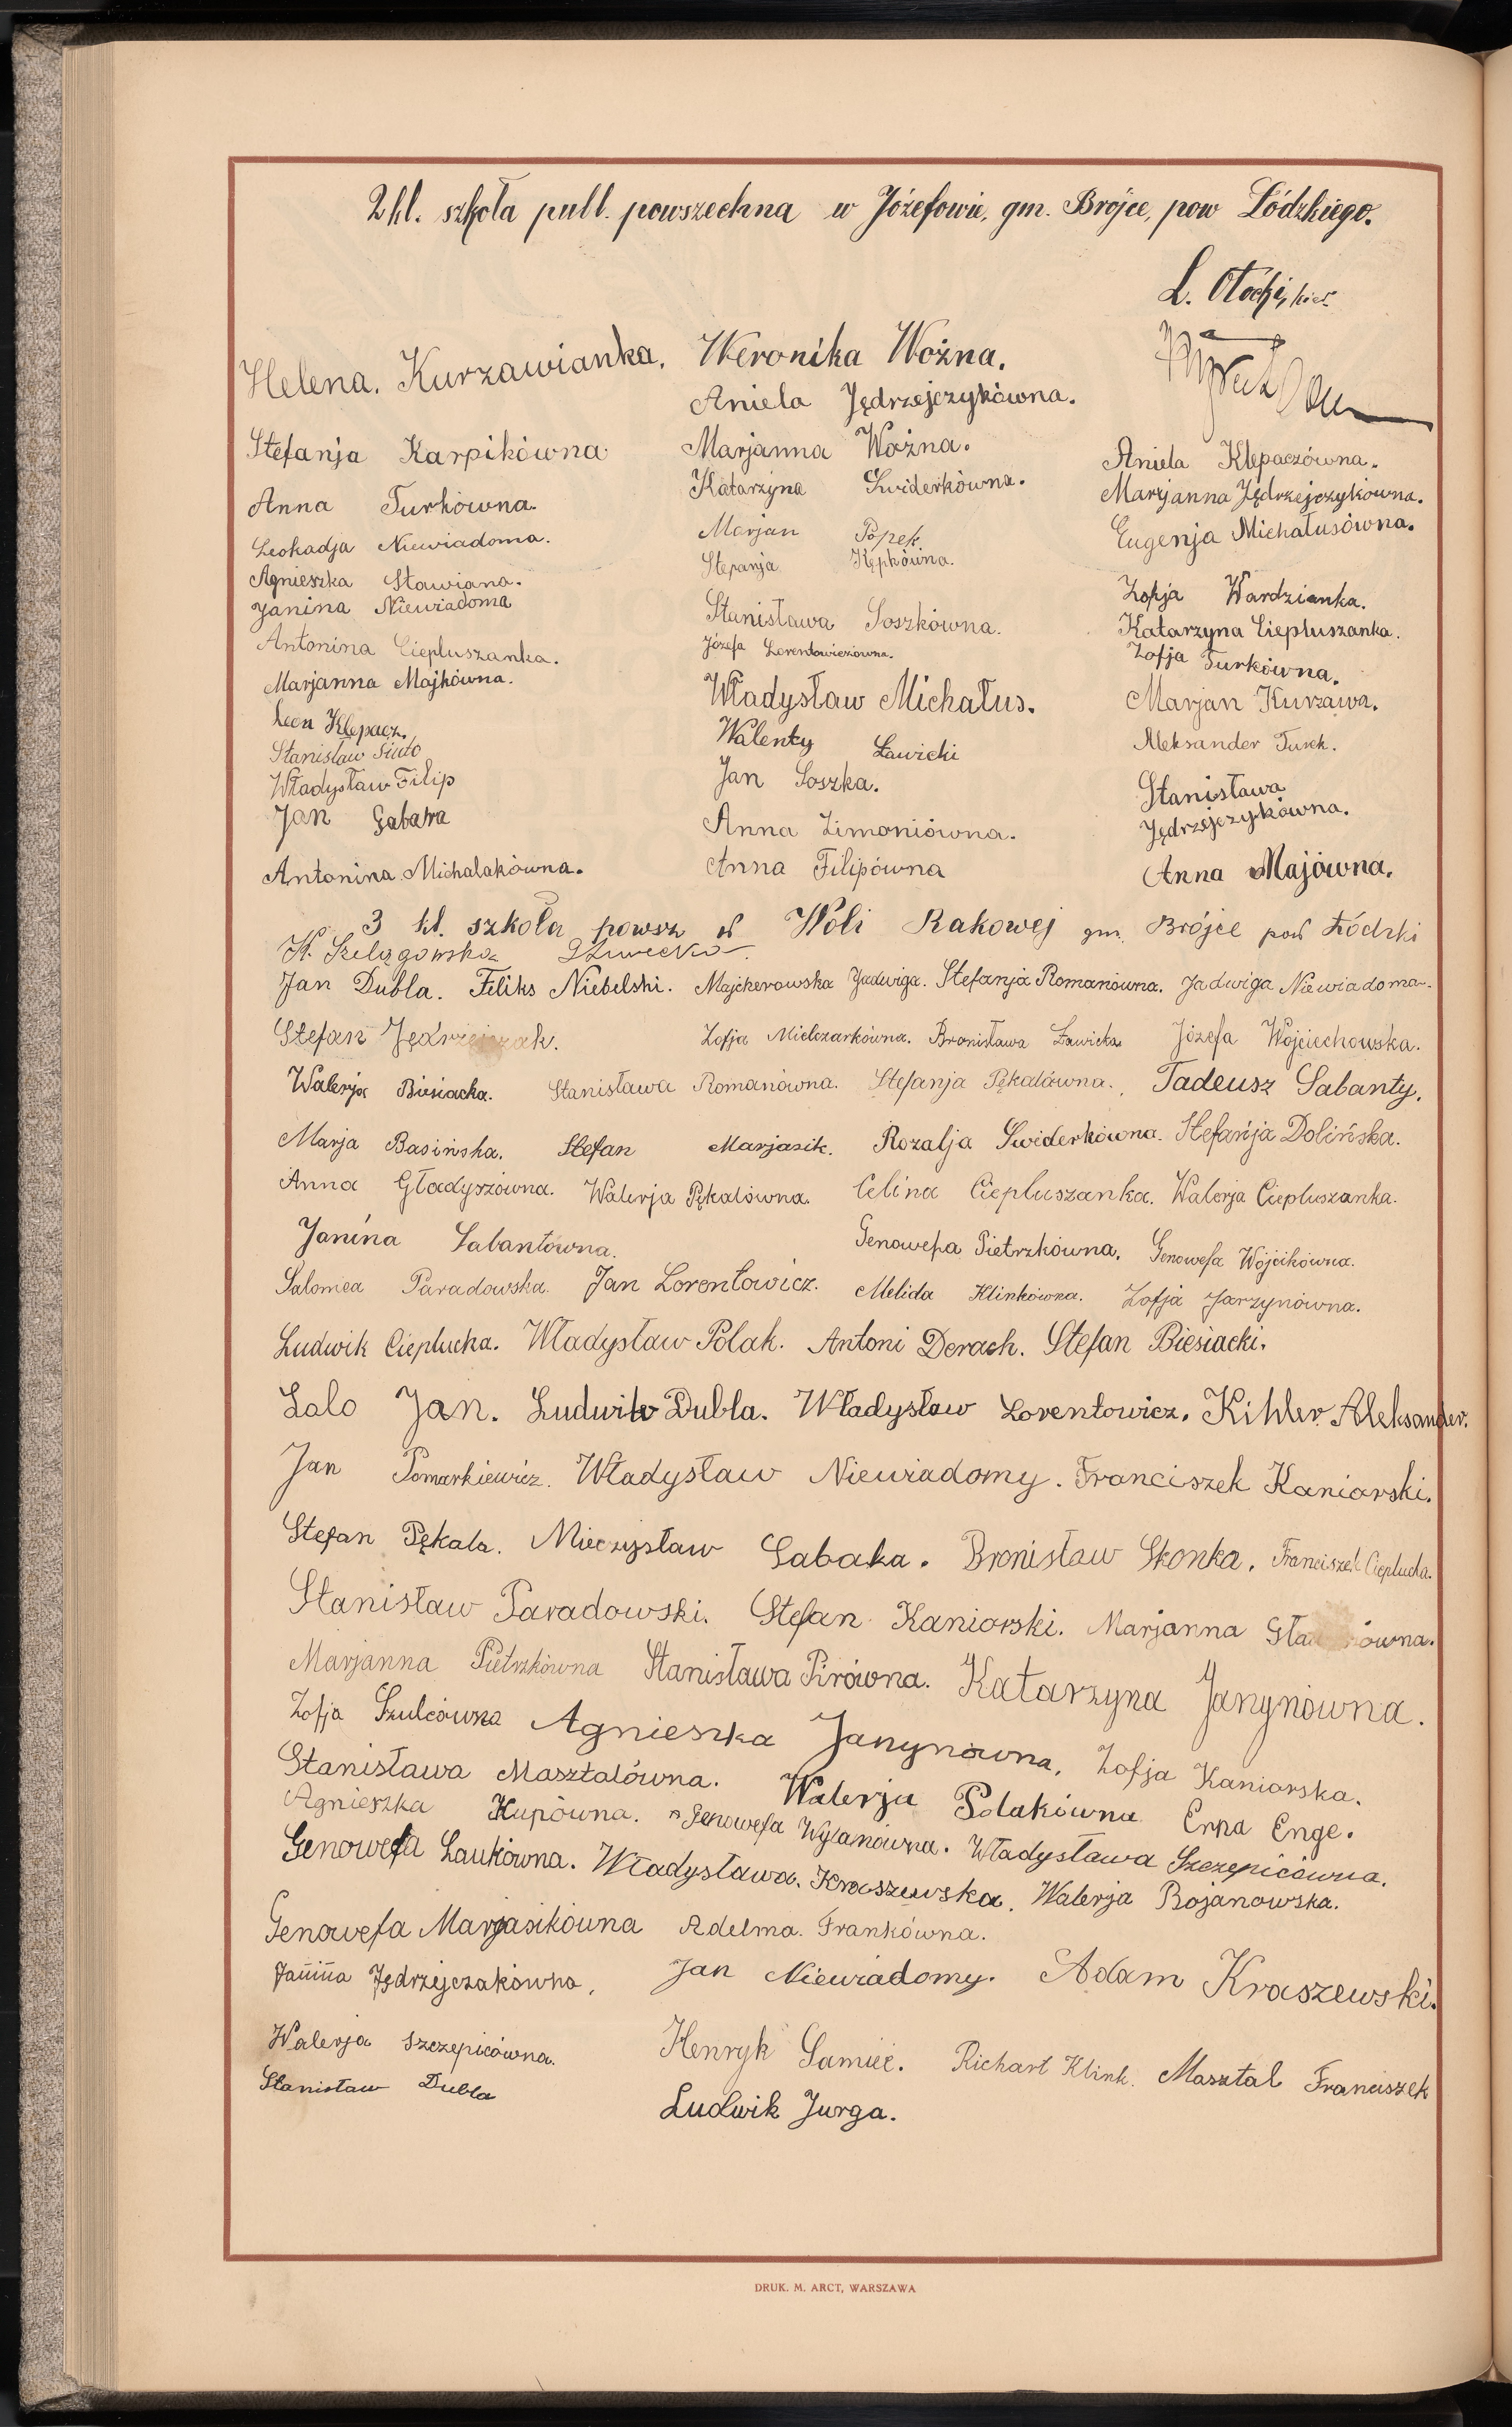 2 kl. szkoła publ. powszechna w Józefowie, gm. Brójce, pow Łódzkiego.
L. Otocki, kier.
Helena. Kurzawianka. Weronika Woźna.
Aniela Jędrzejczykówna.
Stefanja Karpikówna Marjanna Woźna. Aniela Klepaczówna.
Anna Turkówna. Katarzyna Swiderkówna. Marjanna Jędrzejczykówna.
Leokadja Niewiadoma. Marjan Popek Eugenja Michałusówna.
Agnieszka Stawiana. Stefanja Kępkówna. Zofja Wardzianka.
Janina Niewiadoma Stanisława Soszkówna. Katarzyna Ciepłuszanka.
Antonina Ciepluszanka. Józefa Lorentowiczówna. Zofja Turkówna.
Marjanna Majkówna. Władysław Michałus. Marjan Kurzawa.
Leon Klepacz. Walenty Ławicki Aleksander Turek.
Stanisław
Władysław Filip Jan Soszka. Stanisława Jędrzejczykówna.
Jan Gabara Anna Zimoniówna.
Antonina Michalakówna. Anna Filipówna Anna Majówna.
3 kl. szkoła powsz w Woli Rakowej gm. Brójce pow Łódzki
K. Szelągowska
Jan Dubla. Feliks Niebelski. Majcherowska Jadwiga. Stefanja Romanówna. Jadwiga Niewiadoma.
Stefan Jędrzejczak. Zofja Mielczarkówna. Bronisława Ławicka Józefa Wojciechowska.
Walerja Biesiacka. Stanisława Romanówna. Stefanja Pękalówna. Tadeusz Sabanty.
Marja Basińska. Stefan Marjasik. Rozalja Swiderkówna. Stefanja Dolińska.
Anna Gładyszówna. Walerja Pękalówna. Celina Ciepluszanka. Walerja Ciepluszanka.
Janina Sabantówna. Genowefa Pietrzkówna. Genowefa Wójcikówna.
Salomea Paradowska. Jan Lorentowicz. Melida Klinkówna. Zofja Jarzynówna.
Ludwik Cieplucha. Władysław Polak. Antoni Derach. Stefan Biesiacki.
Lalo Jan. Ludwik Dubla. Władysław Lorentowicz. Kihler Aleksander.
Jan Pomarkiewicz. Władysław Niewiadomy. Franciszek Kaniorski.
Stefan Pękala. Mieczysław Gabaka. Bronisław Skonka. Franciszek Cieplucha.
Stanisław Paradowski. Stefan Kaniorski. Marjanna
Marjanna Pietrzkówna Stanisława Pirówna. Katarzyna Janynówna.
Zofja Szulcówna Agnieszka Janynówna. Zofja Kaniorska.
Stanisława Masztalówna. Walerja Polakówna Erna Enge.
Agnieszka Kupówna. Genowefa Wylanówna. Władysława Szczepicówna.
Genowefa Laukówna. Władysława. Kraszewska. Walerja Bojanowska.
Genowefa Marjasikówna Adelma. Frankówna.
Janina Jędrzejczakówna, Jan Niewiadomy. Adam Kraszewski.
Walerja Szczepicówna. Henryk Samiec. Richart Klink. Masztal Franciszek
Stanisław Dubla Ludwik Jurga.
DRUK. M. ARCT, WARSZAWA